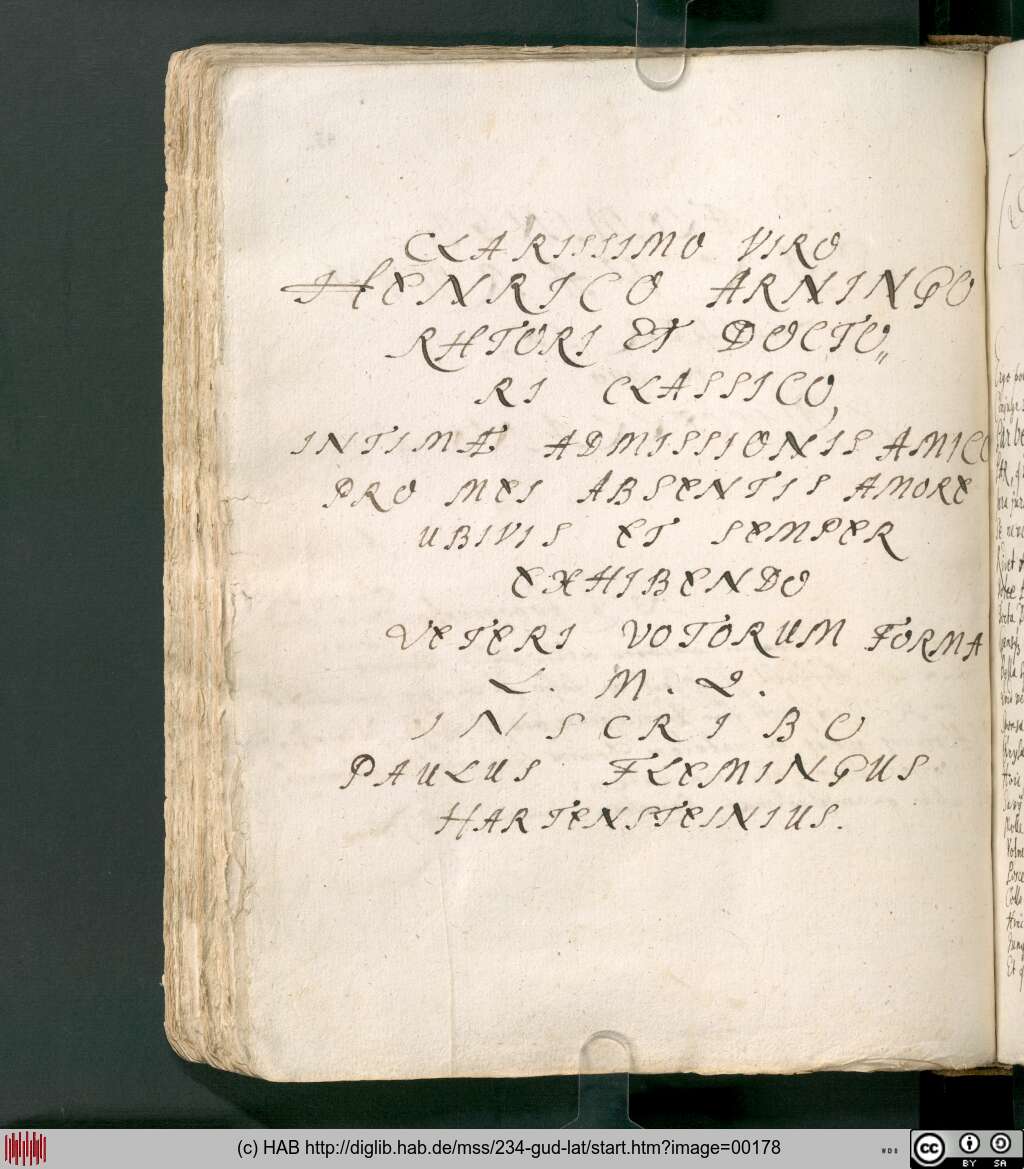 CLARISSIMO VIRO
HENRICO ARNINGO
RHTORI ET DOCTO„
RI CLASSICO,
INTIMÆ ADMISSIONIS AMICO
PRO MEI ABSENTIS AMORE
UBIVIS ET SEMPER
EXHIBENDO
VETERI VOTORUM FORMA
L. M. Q.
INSCRIBO
PAULUS FLEMINGUS
HARTENSTEINIUS.
(c) HAB http://diglib.hab.de/mss/234-gud-lat/start.htm?image=00178
WDB
cc
BY SA